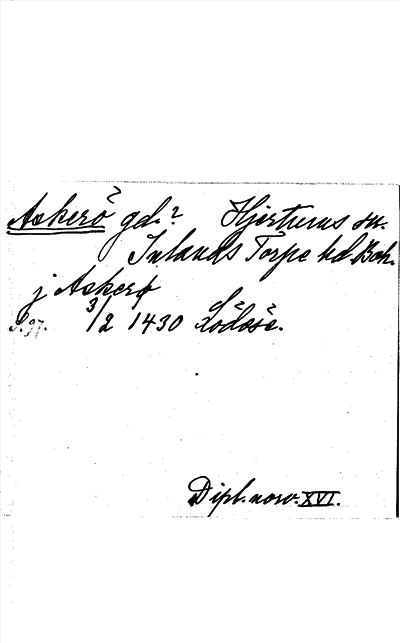 Askerö gd.? Hjertums sn.
Inlands Torpe hd Boh.
j Askerø
S. 97. 3/2 1430 Lödöse.
Dipl. norv. XVI.